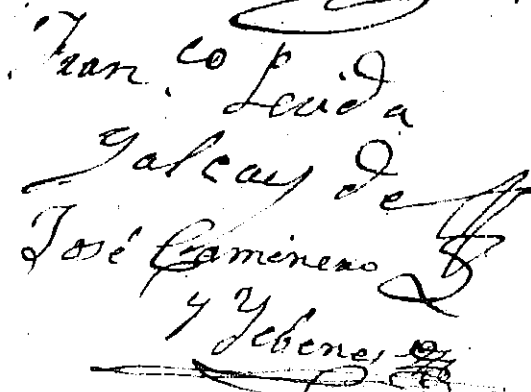 Fran.co
Lerida
Galcay de
José Caminero
y Yebenes